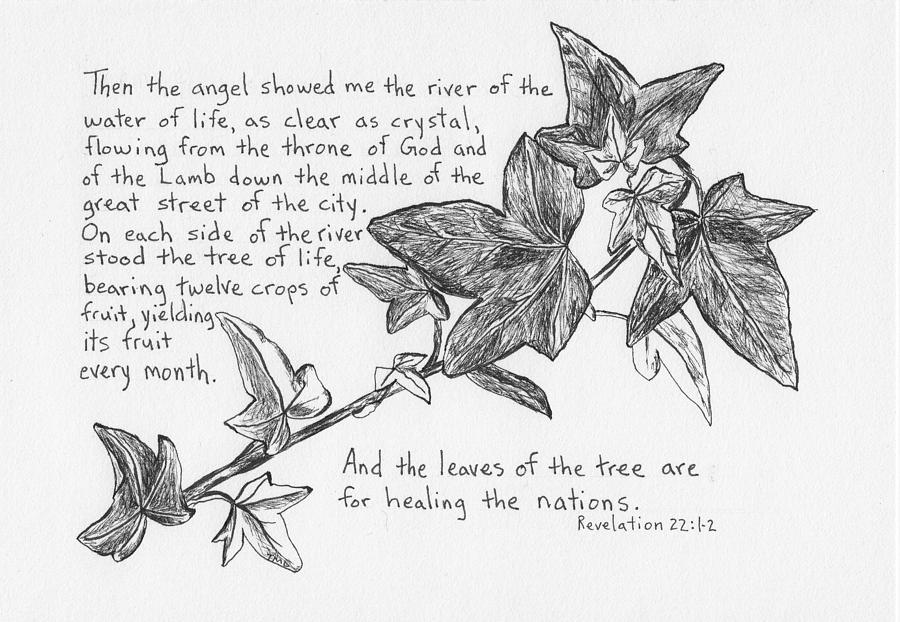 Then the angel showed me the river of the
water of life, as clear as crystal,
flowing from the throne of God and
of the Lamb down the middle of the
great street of the city.
On each side of the river
stood the tree of life,
bearing twelve crops of
fruit, yielding
its fruit
every month.
And the leaves of the tree are
for healing the nations.
Revelation 22:1-2